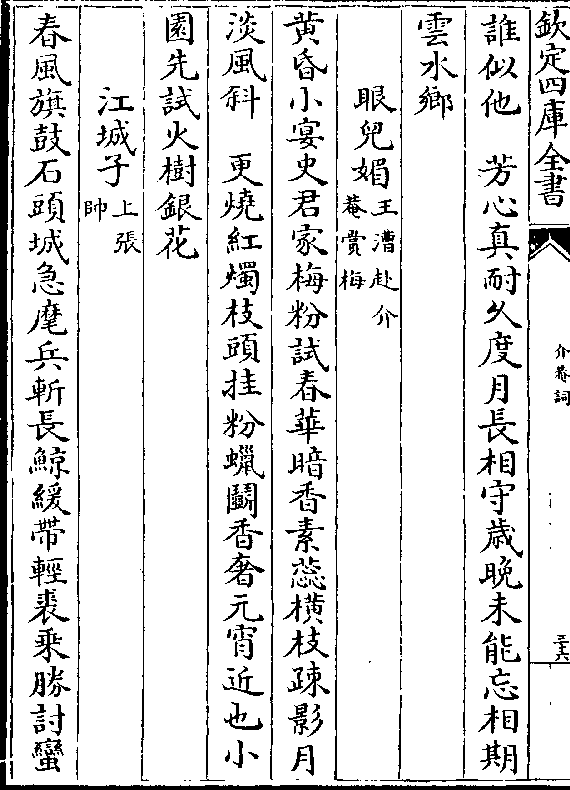 欽定四庫全書
介菴詞
三六
誰似他　芳心真耐久度月長相守歲晚未能忘相期
雲水鄉
眼兒媚王漕赴介菴賞梅
黄昏小宴史君家梅粉試春華暗香素蕊橫枝疎影月
淡風斜　更燒紅燭枝頭挂粉蠟鬭香奢元宵近也小
園先試火樹銀花
江城子上張帥
春風旗鼓石頭城急麾兵斬長鯨緩帶輕裘乗勝討蠻